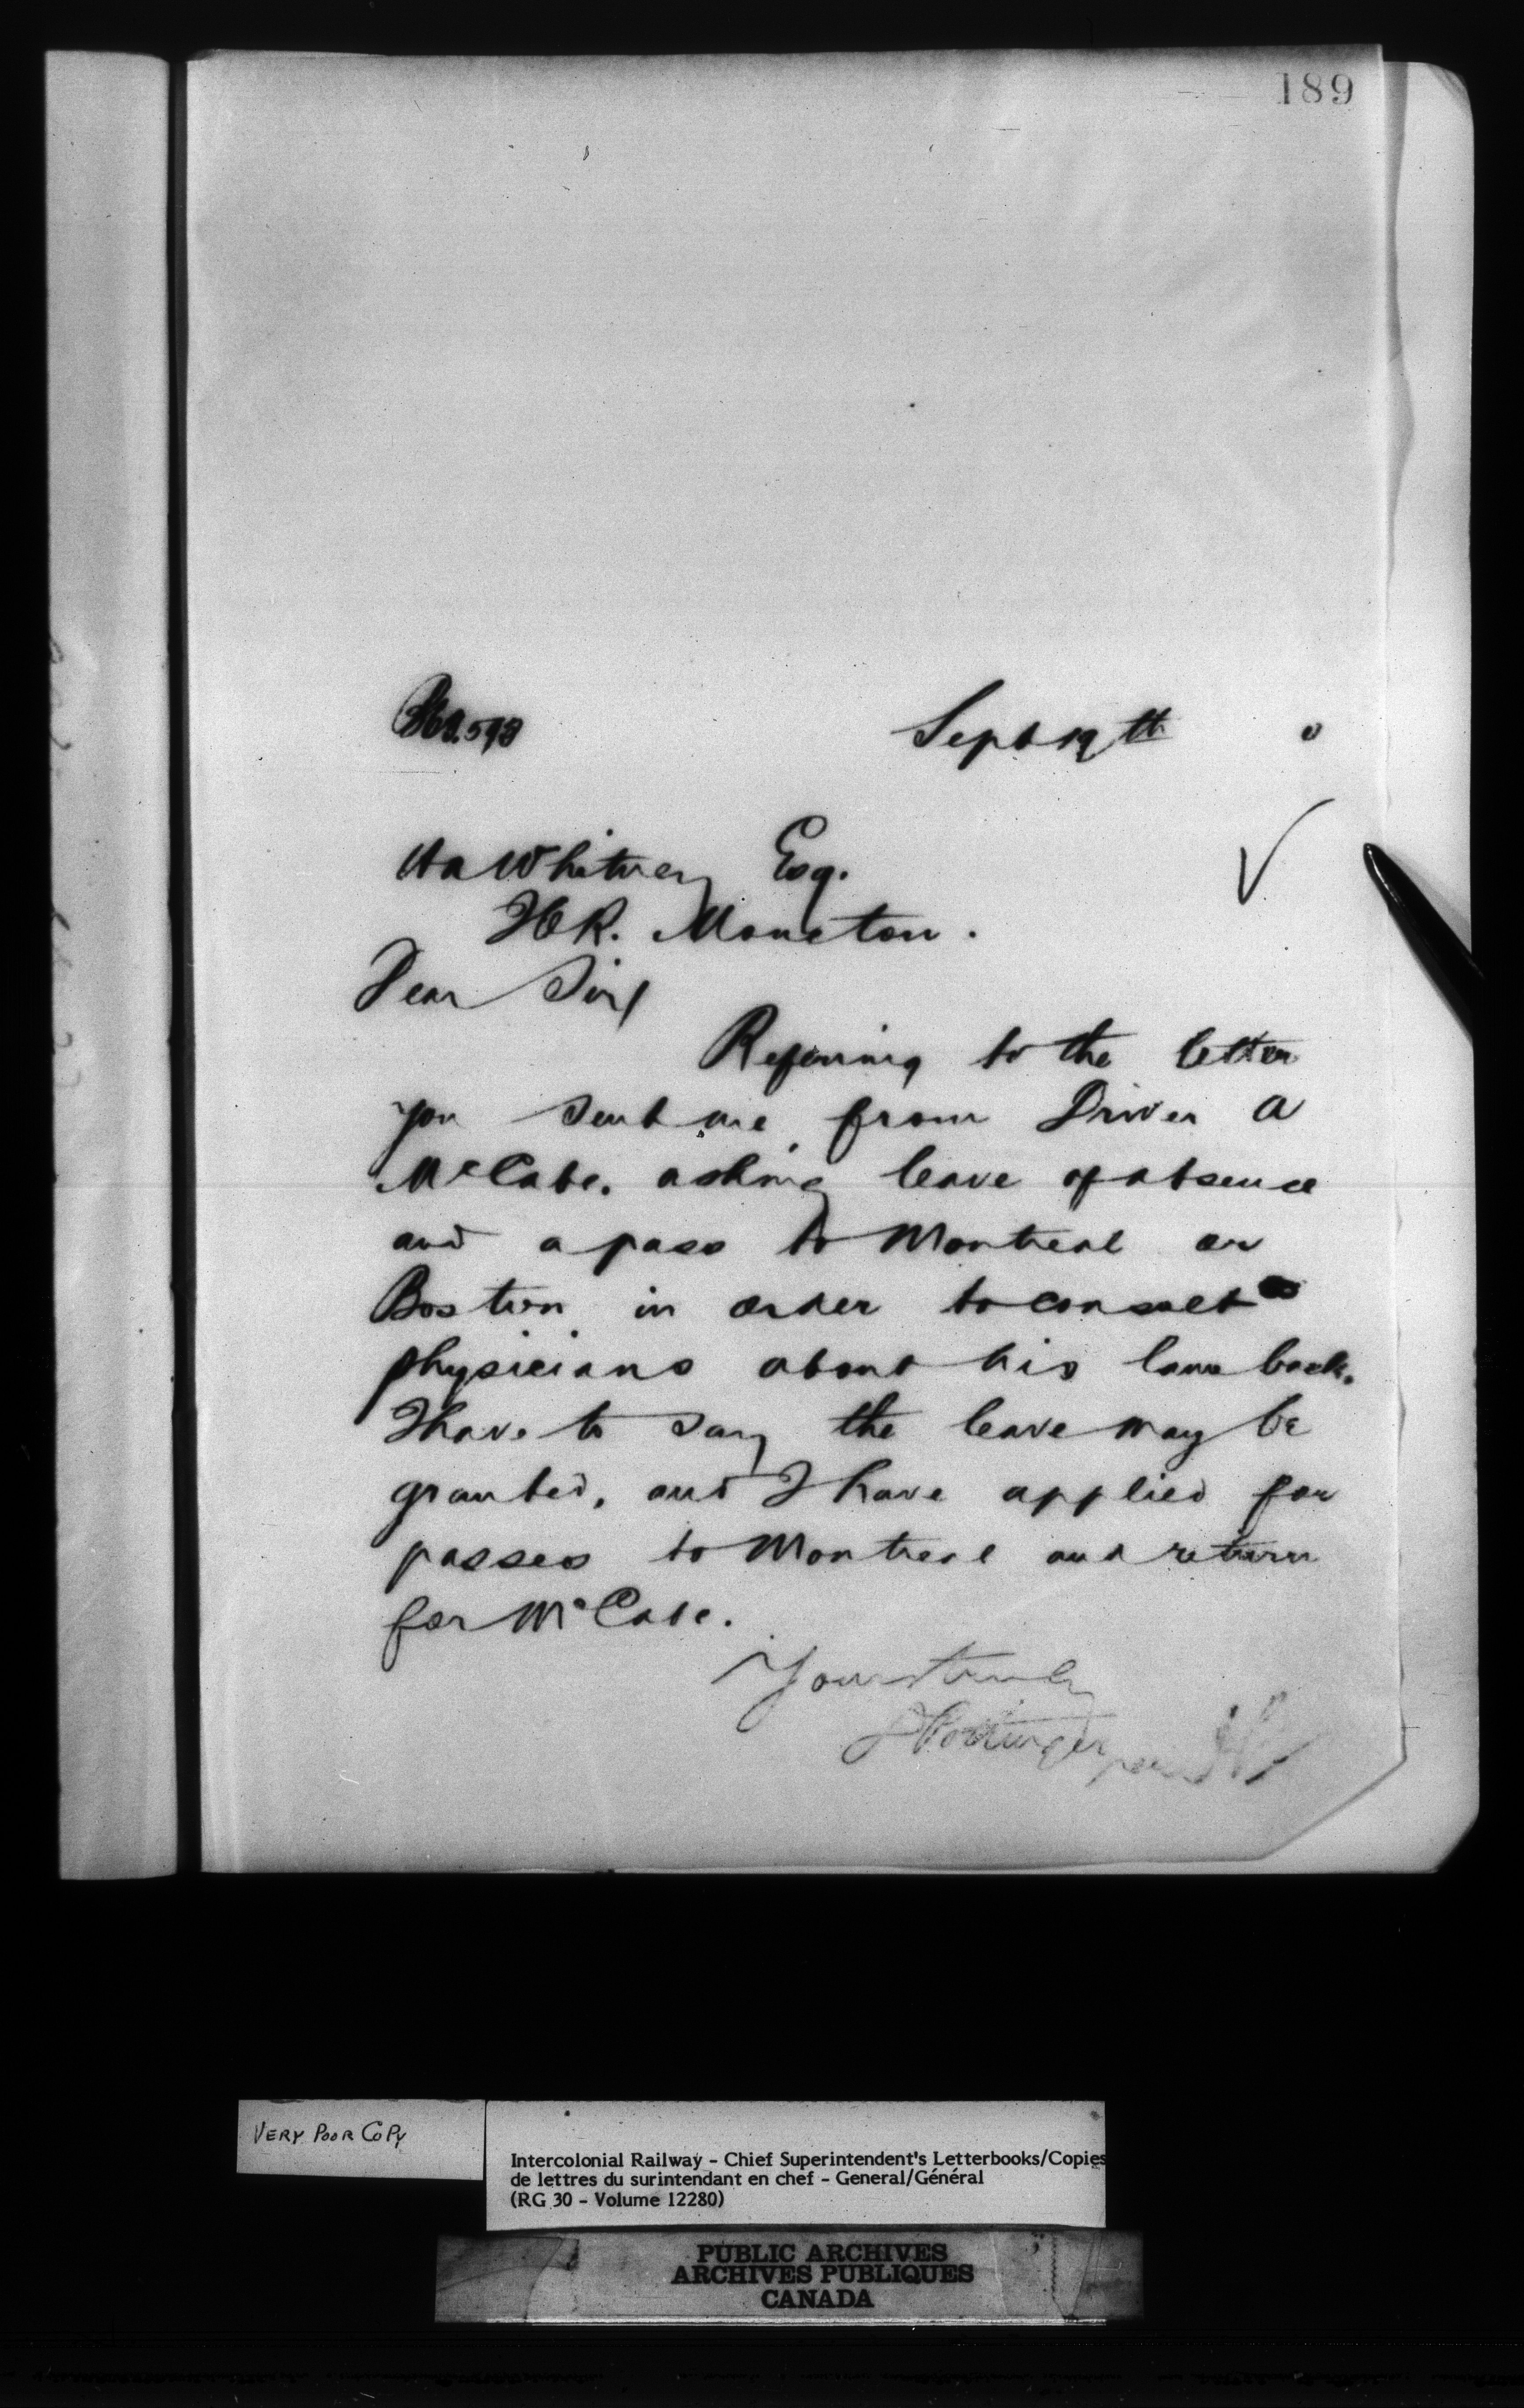 189
Sept 19th 0
HA Whitney Esq.
ICR. Moncton.
Dear Sir/
Referring to the letter
you sent me from Driver A
McCabe. asking leave of absence
and a pass to Montreal or
Boston in order to consult
physicians about his lame back.
I have to say the leave may be
granted, and I have applied for
passes to Montreal and return
for McCabe.
Yours truly
D Pottinger
per
VERY POOR COPY
Intercolonial Railway - Chief Superintendent's Letterbooks/Copies
de lettres du surintendant en chef - General/Général
(RG 30 - Volume 12280)
PUBLIC ARCHIVES
ARCHIVES PUBLIQUES
CANADA